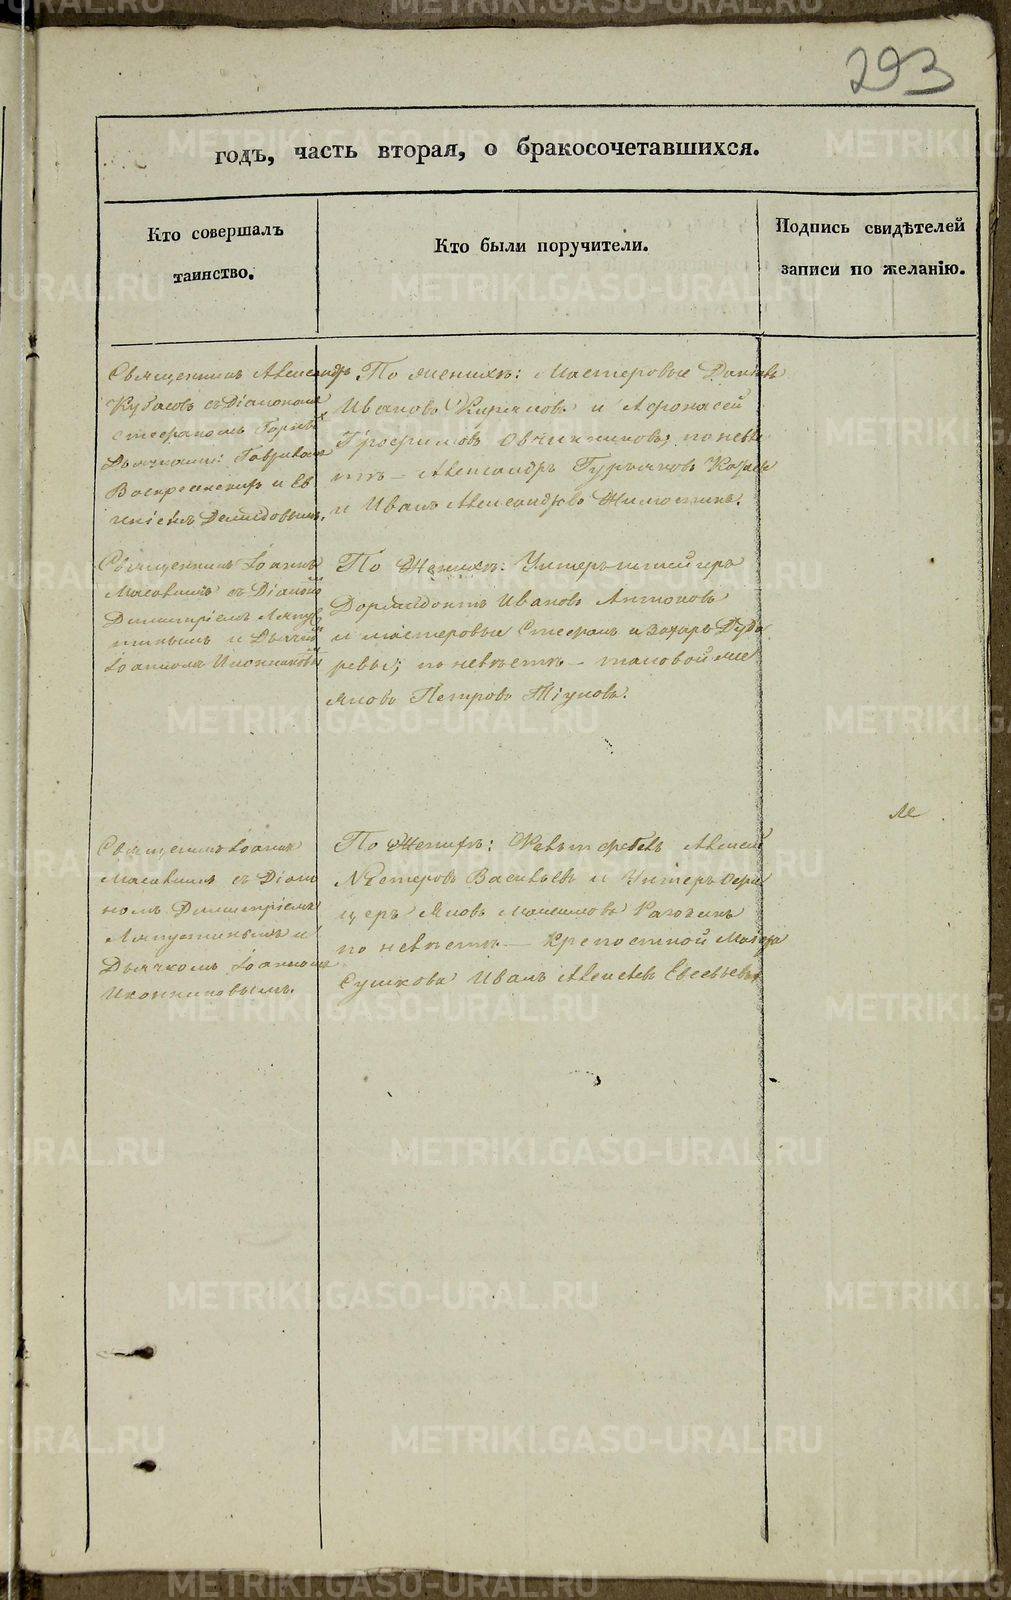 293
годъ, часть вторая, о бракосочетавшихся.
Кто совершалъ
таинство.
Кто были поручители.
Подпись свидѣтелей
записи по желанію.
Священникъ Александръ
Кубасовъ съ Діакономъ
Стефаномъ
Дьячками: Гавриломъ
Воскресенскимъ и Ев
геніемъ Демидовымъ.
По женихѣ: Мастеровые
Ивановъ Кириловъ и Афонасей
Трофимовъ Овчинниковъ; по невѣ
стѣ – Александръ
и Иванъ Александровъ
Священникъ Іоаннъ
съ Діакономъ
Димитріемъ Ляпу
стинымъ и Дьячкомъ
Іоанномъ Иконниковымъ
По Женихѣ: Унтеръ-шмейгеръ
Дормидонтъ Ивановъ Антоновъ
и мастеровые Стефанъ и Захаръ Дуда
ревы; по невѣстѣ – таковой же
Яковъ Петровъ Тіуновъ.
Священникъ Іоаннъ
съ Діако
номъ Димитріемъ
Ляпустинымъ и
Дьячкомъ Іоанномъ
Иконниковымъ.
По Женихѣ: Алексей
Нестеровъ Васильевъ и Унтеръ Офи
церъ Яковъ
по невѣстѣ – Крепостной
Сушкова Иванъ Алексѣевъ
METRIKI.GASO-URAL.RU